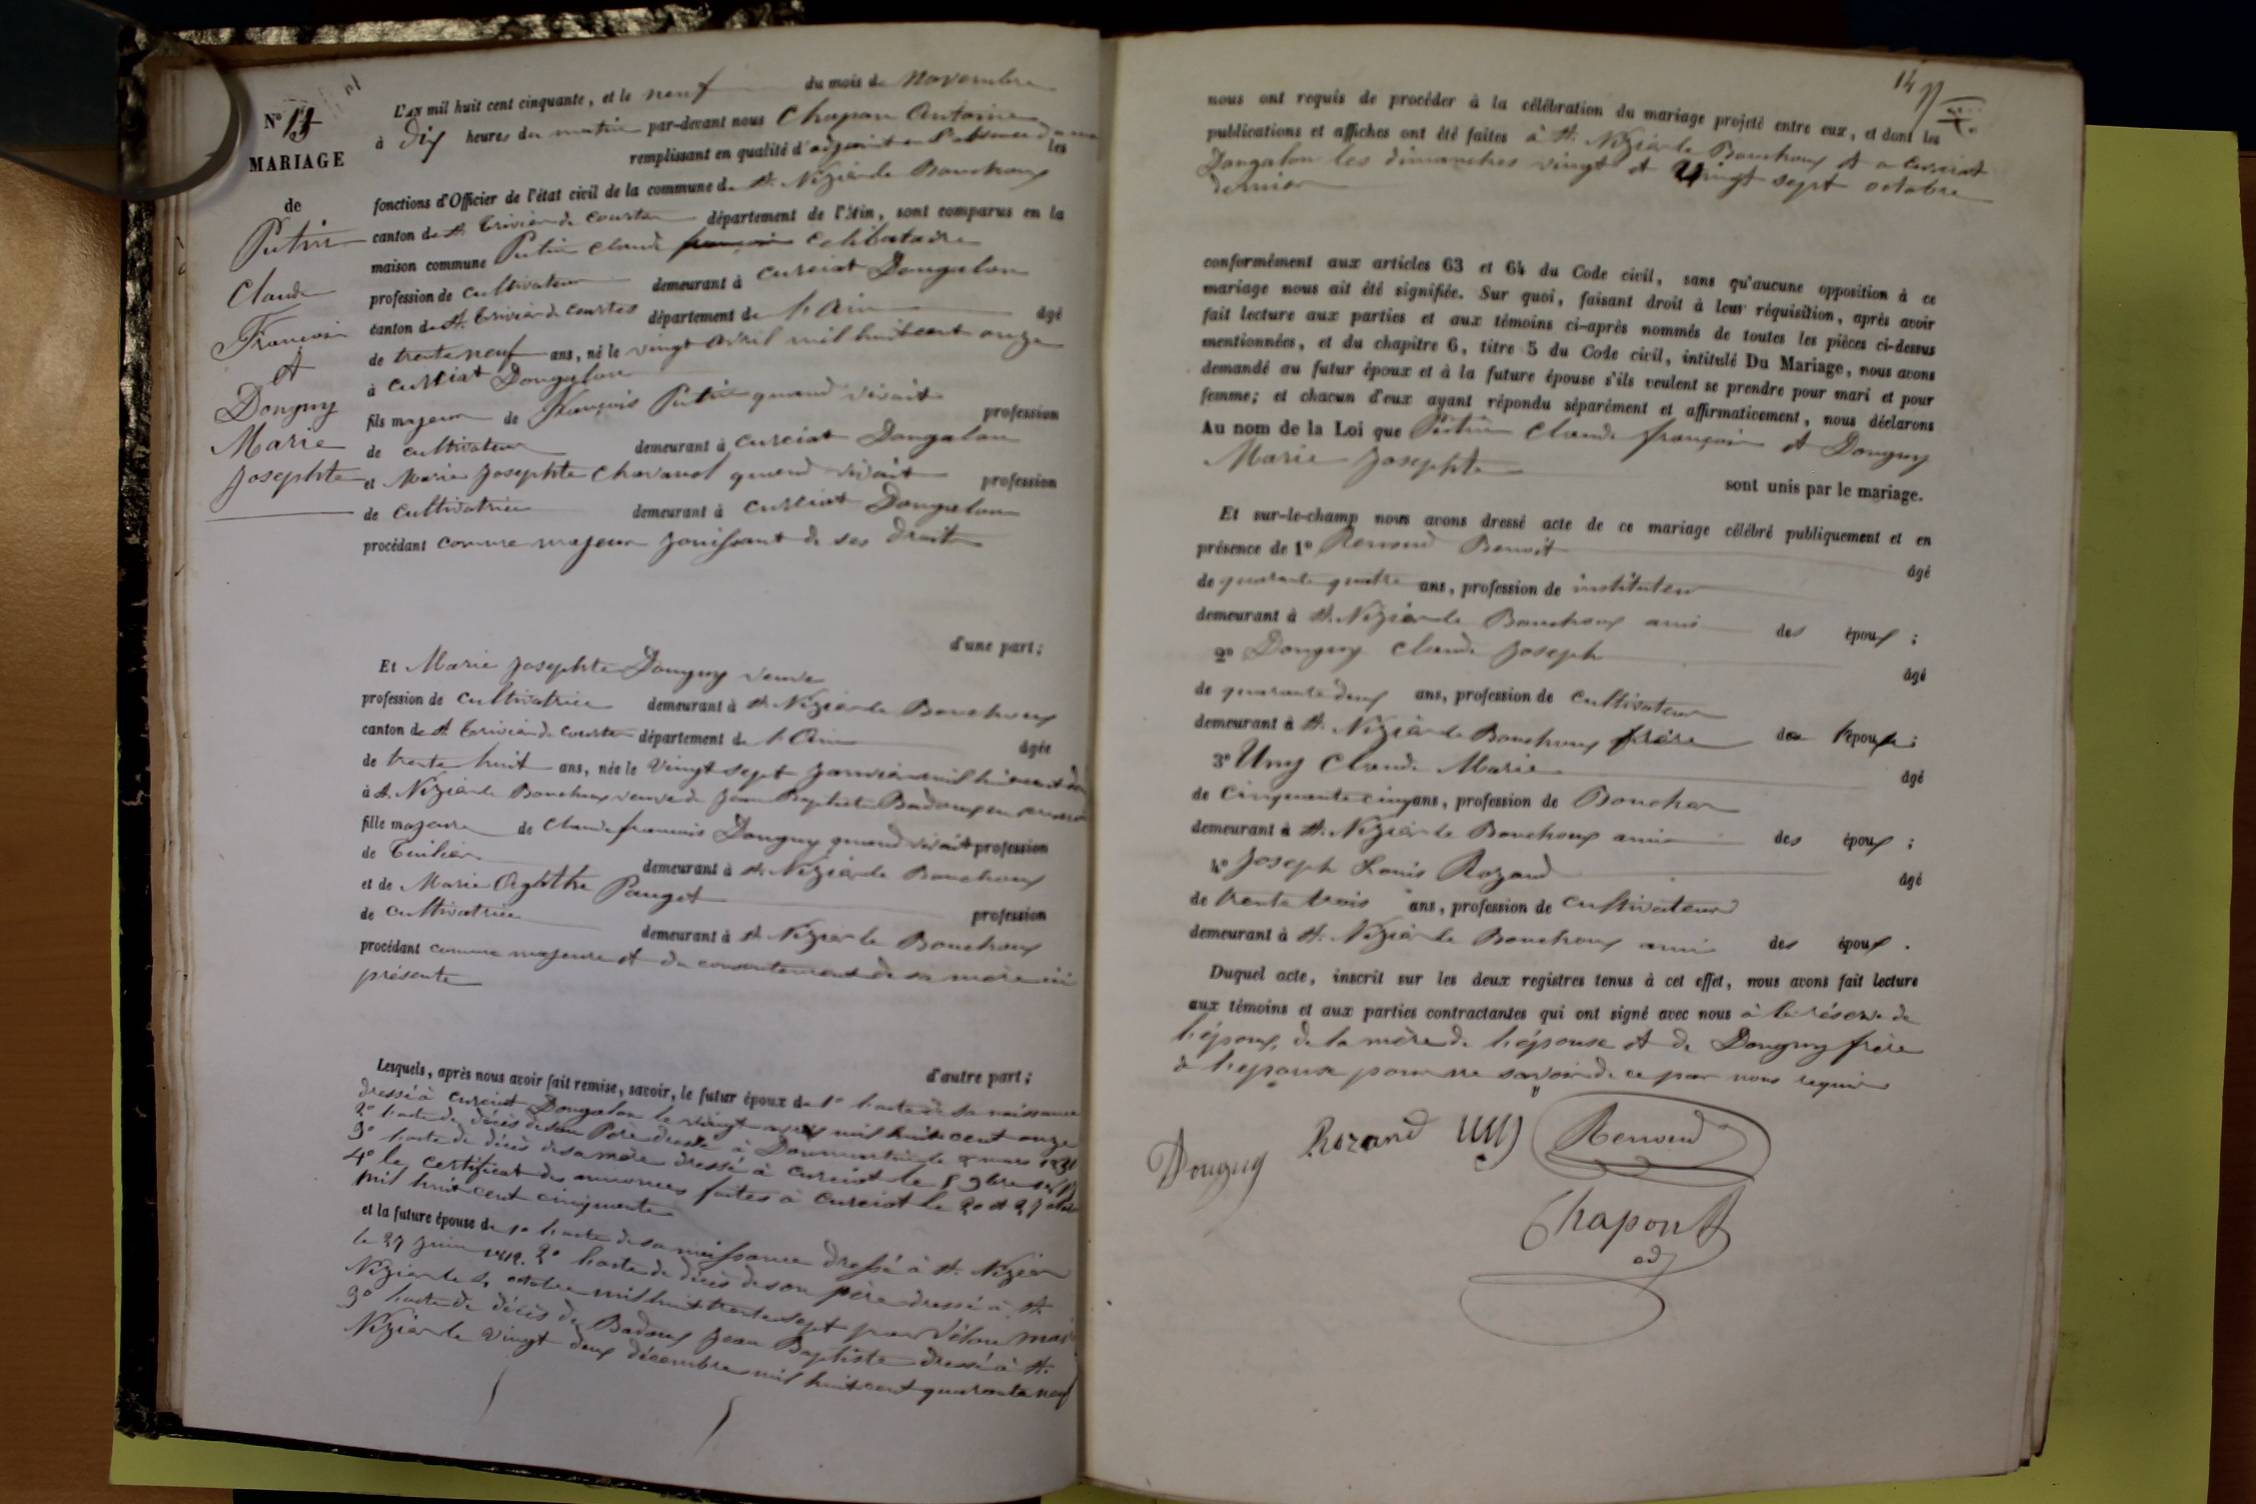 N° 13
MARIAGE
de
Putin
Claude
François
et
Donguy
Marie
Josephte
L'an mil huit cent cinquante, et le neuf du mois de novembre
à Dix heures du matin par-devant nous Chapon Antoine
remplissant en qualité d'adjoint en l'absence du maire les
fonctions d'Officier de l'état civil de la commune de St. Nizier le Bouchoux
canton de St. Trivier de Courtes département de l'Ain, sont comparus en la
maison commune Putin Claude françois celibataire
profession de cultivateur demeurant à Curciat Dongalon
canton de St. Trivier de Courtes département de l'Ain âgé
de trente neuf ans, né le vingt avril mil huit cent onze
à Curciat Dongalon
fils majeur de François Putin quand vivait profession
de cultivateur demeurant à Curciat Dongalon
et Marie Josephte Chavanel quand vivait profession
de cultivatrice demeurant à Curciat Dongalon
procédant comme majeur jouissant de ses droits
d'une part;
Et Marie Josephte Donguy veuve
profession de cultivatrice demeurant à St. Nizier le Bouchoux
canton de St. Trivier de Courtes département de l'Ain âgée
de trente huit ans, née le vingt sept janvier mil huit cent
à St. Nizier le Bouchoux veuve de Jean Baptiste Badoux en
fille majeure de Claude francois Donguy quand vivait profession
de Tuilier demeurant à St. Nizier le Bouchoux
et de Marie Agathe Pauget profession
de cultivatrice demeurant à St. Nizier le Bouchoux
procédant comme majeure et du consentement de sa mère ici
présente
d'autre part;
Lesquels, après nous avoir fait remise, savoir, le futur époux de 1° l'acte de sa naissance
dressé à Curciat Dongalon le vingt mil huit cent onze
2° l'acte de décès de son Père dressé à Dommartin le mars 1831
3° l'acte de décès de sa mère dressé à Curciat le 9bre
4° le certificat des annonces faites à Curciat le 20 et 27 octobre
mil huit cent cinquante
et la future épouse de 1° l'acte de sa naissance dressé à St. Nizier
le 27 1812. 2° l'acte de décès de son père dressé à St.
Nizier le octobre mil huit trente sept
3° l'acte de décès de Badoux Jean Baptiste dressé à St.
Nizier le vingt deux décembre mil huit cent quarante neuf
14
nous ont requis de procéder à la célébration du mariage projeté entre eux, et dont les
publications et affiches ont été faites à St. Nizier le Bouchoux et a Curciat
Dongalon les dimanches vingt et vingt sept octobre
dernier
conformément aux articles 63 et 64 du Code civil, sans qu'aucune opposition à ce
mariage nous ait été signifiée. Sur quoi, faisant droit à leur réquisition, après avoir
fait lecture aux parties et aux témoins ci-après nommés de toutes les pièces ci-dessus
mentionnées, et du chapitre 6, titre 5 du Code civil, intitulé Du Mariage, nous avons
demandé au futur époux et à la future épouse s'ils veulent se prendre pour mari et pour
femme; et chacun d'eux ayant répondu séparément et affirmativement, nous déclarons
Au nom de la Loi que Putin Claude françois et Donguy
Marie Josephte sont unis par le mariage.
Et sur-le-champ nous avons dressé acte de ce mariage célébré publiquement et en
présence de 1° Renoud Benoit âgé
de quarante quatre ans, profession de instituteur
demeurant à St. Nizier le Bouchoux ami des époux;
2° Donguy Claude Joseph âgé
de quarante deux ans, profession de cultivateur
demeurant à St. Nizier le Bouchoux frère de l'épouse;
3° Uny Claude Marie âgé
de cinquante cinq ans, profession de Boucher
demeurant à St. Nizier le Bouchoux ami des époux;
4° Joseph Louis Rozand âgé
de trente trois ans, profession de cultivateur
demeurant à St. Nizier le Bouchoux ami des époux.
Duquel acte, inscrit sur les deux registres tenus à cet effet, nous avons fait lecture
aux témoins et aux parties contractantes qui ont signé avec nous à la réserve de
l'époux, de la mère de l'épouse et de Donguy frère
de l'épouse pour ne savoir de ce par nous requis
Donguy Rozand Uny Renoud
Chapon
adj